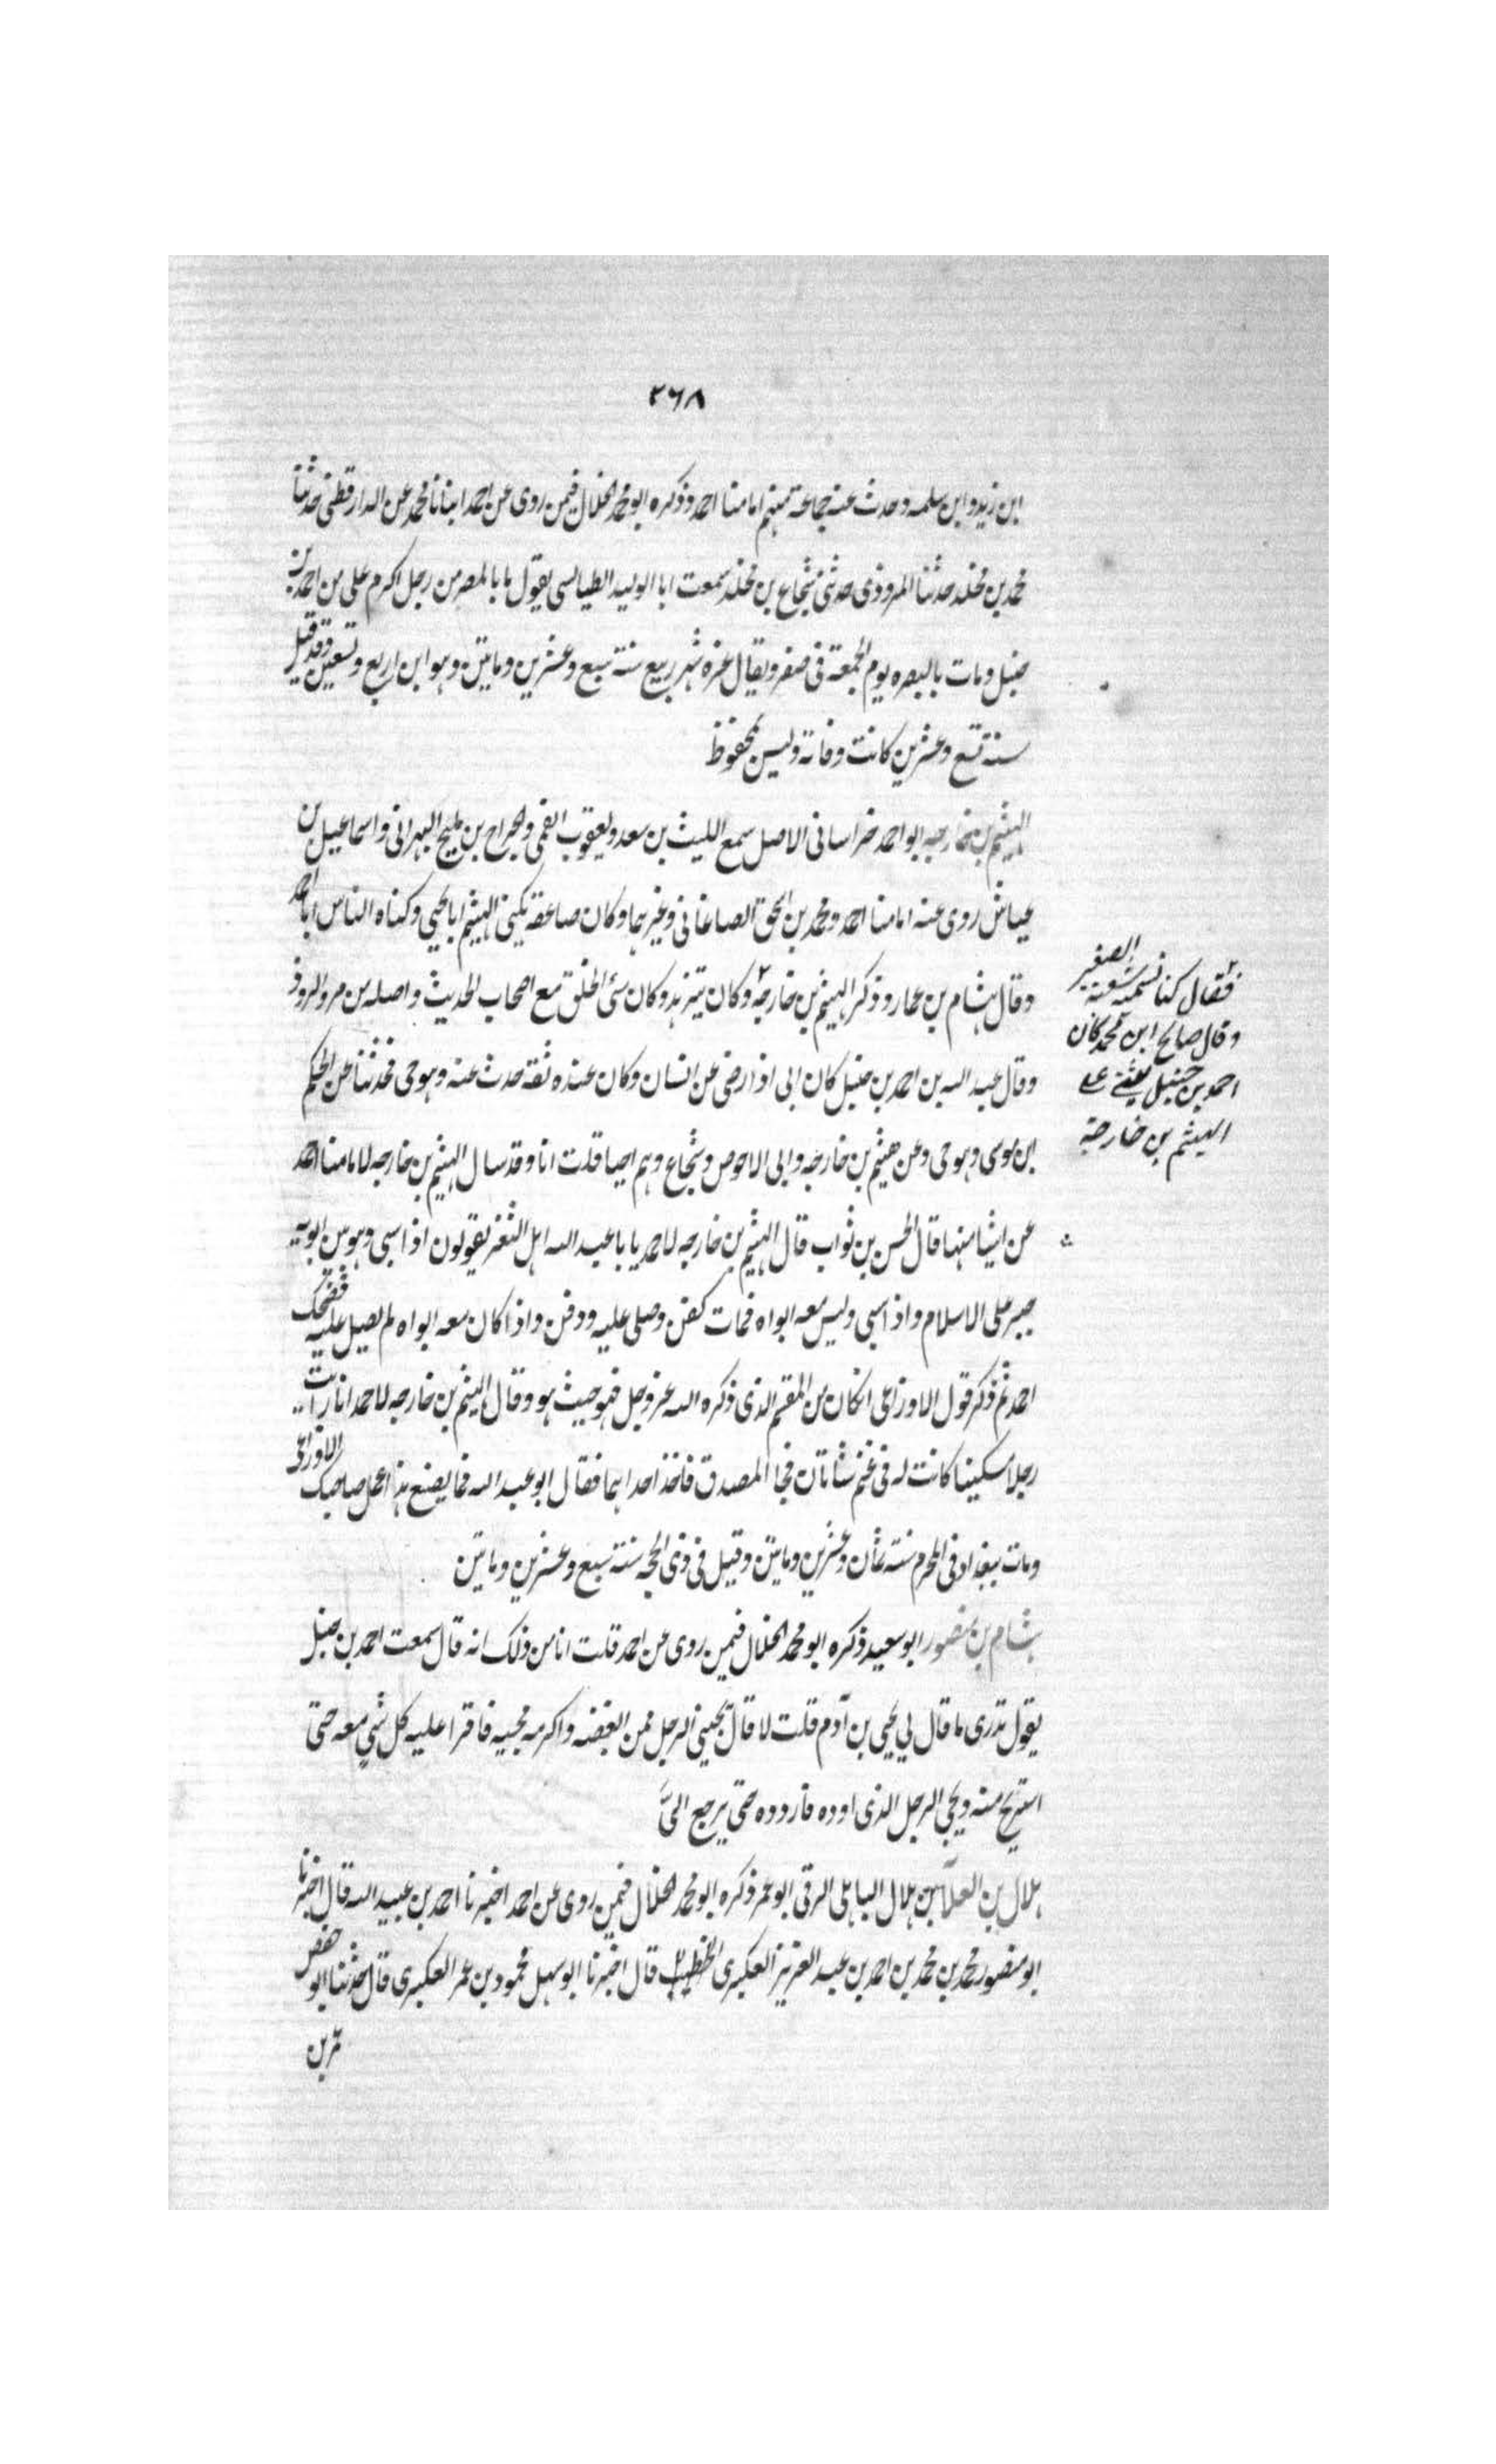 ٢٦٨
ابن زيد وابن سلمه وحدث عنه جماعة منهم امامنا احمد وذكره ابو محمد الخلال فيمن روى عن احمد انبانا محمد عن الدارقطنى حدثنا
محمد بن مخلد حدثنا المروذى حدثنى شجاع بن مخلد سمعت ابا الوليد الطيالسى يقول ما بالمصرين رجل اكرم على من احمد بن
حنبل ومات بالبصره يوم الجمعة فى صفر ويقال غره شهر ربيع سنة سبع وعشرين ومايتين وهو ابن اربع وتسعين وقد قيل
سنة تسع وعشرين كانت وفاته وليس بمحفوظ
الهيثم بن خارجه ابو احمد خراسانى الاصل سمع الليث بن سعد ويعقوب القمى والجراح بن مليح البهرانى واسماعيل بن
عياش روى عنه امامنا احمد ومحمد بن اسحق الصاغانى وغيرهما وكان صاعقة يكنى الهيثم ابا يحيى وكناه الناس ابا احمد
وقال هشام بن عمار وذكر الهيثم بن خارجه ٢ وكان يتزهد وكان سئ الخلق مع اصحاب الحديث واصله من مرو الروذ
٢ فقال كنا نسميه شعبة الصغير
وقال صالح ابن محمد كان
احمد بن حنبل يثنى على
الهيثم بن خارجة
وقال عبد الله بن احمد بن حنبل كان ابى اذا رضى عن انسان وكان عنده ثقة حدث عنه وهو حى فحدثنا عن الحكم
ابن موسى وهو حى وعن هيثم بن خارجه وابى الاحوص وشجاع وهم احيا قلت انا وقد سال الهيثم بن خارجه لامامنا احمد
عن اشيا منها قال الحسن بن ثواب قال الهيثم بن خارجه لاحمد يا با عبد الله اهل الثغر يقولون اذا سبى وهو بين ابويه
جبر على الاسلام واذا سبى وليس معه ابواه فمات كفن وصلى عليه ودفن واذا كان معه ابواه لم يصل عليه فضحك
احمد ثم ذكر قول الاوزاعى ان كان من المقسم الذى ذكره الله عز وجل فهو حيث هو وقال الهيثم بن خارجه لاحمد انا رايت
رجلا مسكينا كانت له فى غنم شاتان فجا المصدق فاخذ احداهما فقال ابو عبد الله فما يصنع هذا عمل صاحبك الاوزاعى
ومات ببغداد فى المحرم سنة ثمان وعشرين ومايتين وقيل فى ذى الحجه سنة سبع وعشرين ومايتين
هشام بن منصور ابو سعيد ذكره ابو محمد الخلال فيمن روى عن احمد قلت انا من ذلك انه قال سمعت احمد بن حنبل
يقول تدرى ما قال لي يحيى بن آدم قلت لا قال يجيئنى الرجل ممن ابغضه واكره مجيه فاقرا عليه كل شي معه حتى
استريح منه ويجى الرجل الذى اوده فاردده حتى يرجع الىَّ
هلال بن العلا بن هلال الباهلى الرقى ابو عمر ذكره ابو محمد الخلال فيمن روى عن احمد اخبرنا احمد بن عبيد الله قال اخبرنا
ابو منصور محمد بن محمد بن احمد بن عبد العزيز العكبرى الخطيب قال اخبرنا ابو سهل محمود بن عمر العكبرى قال حدثنا ابو حفص